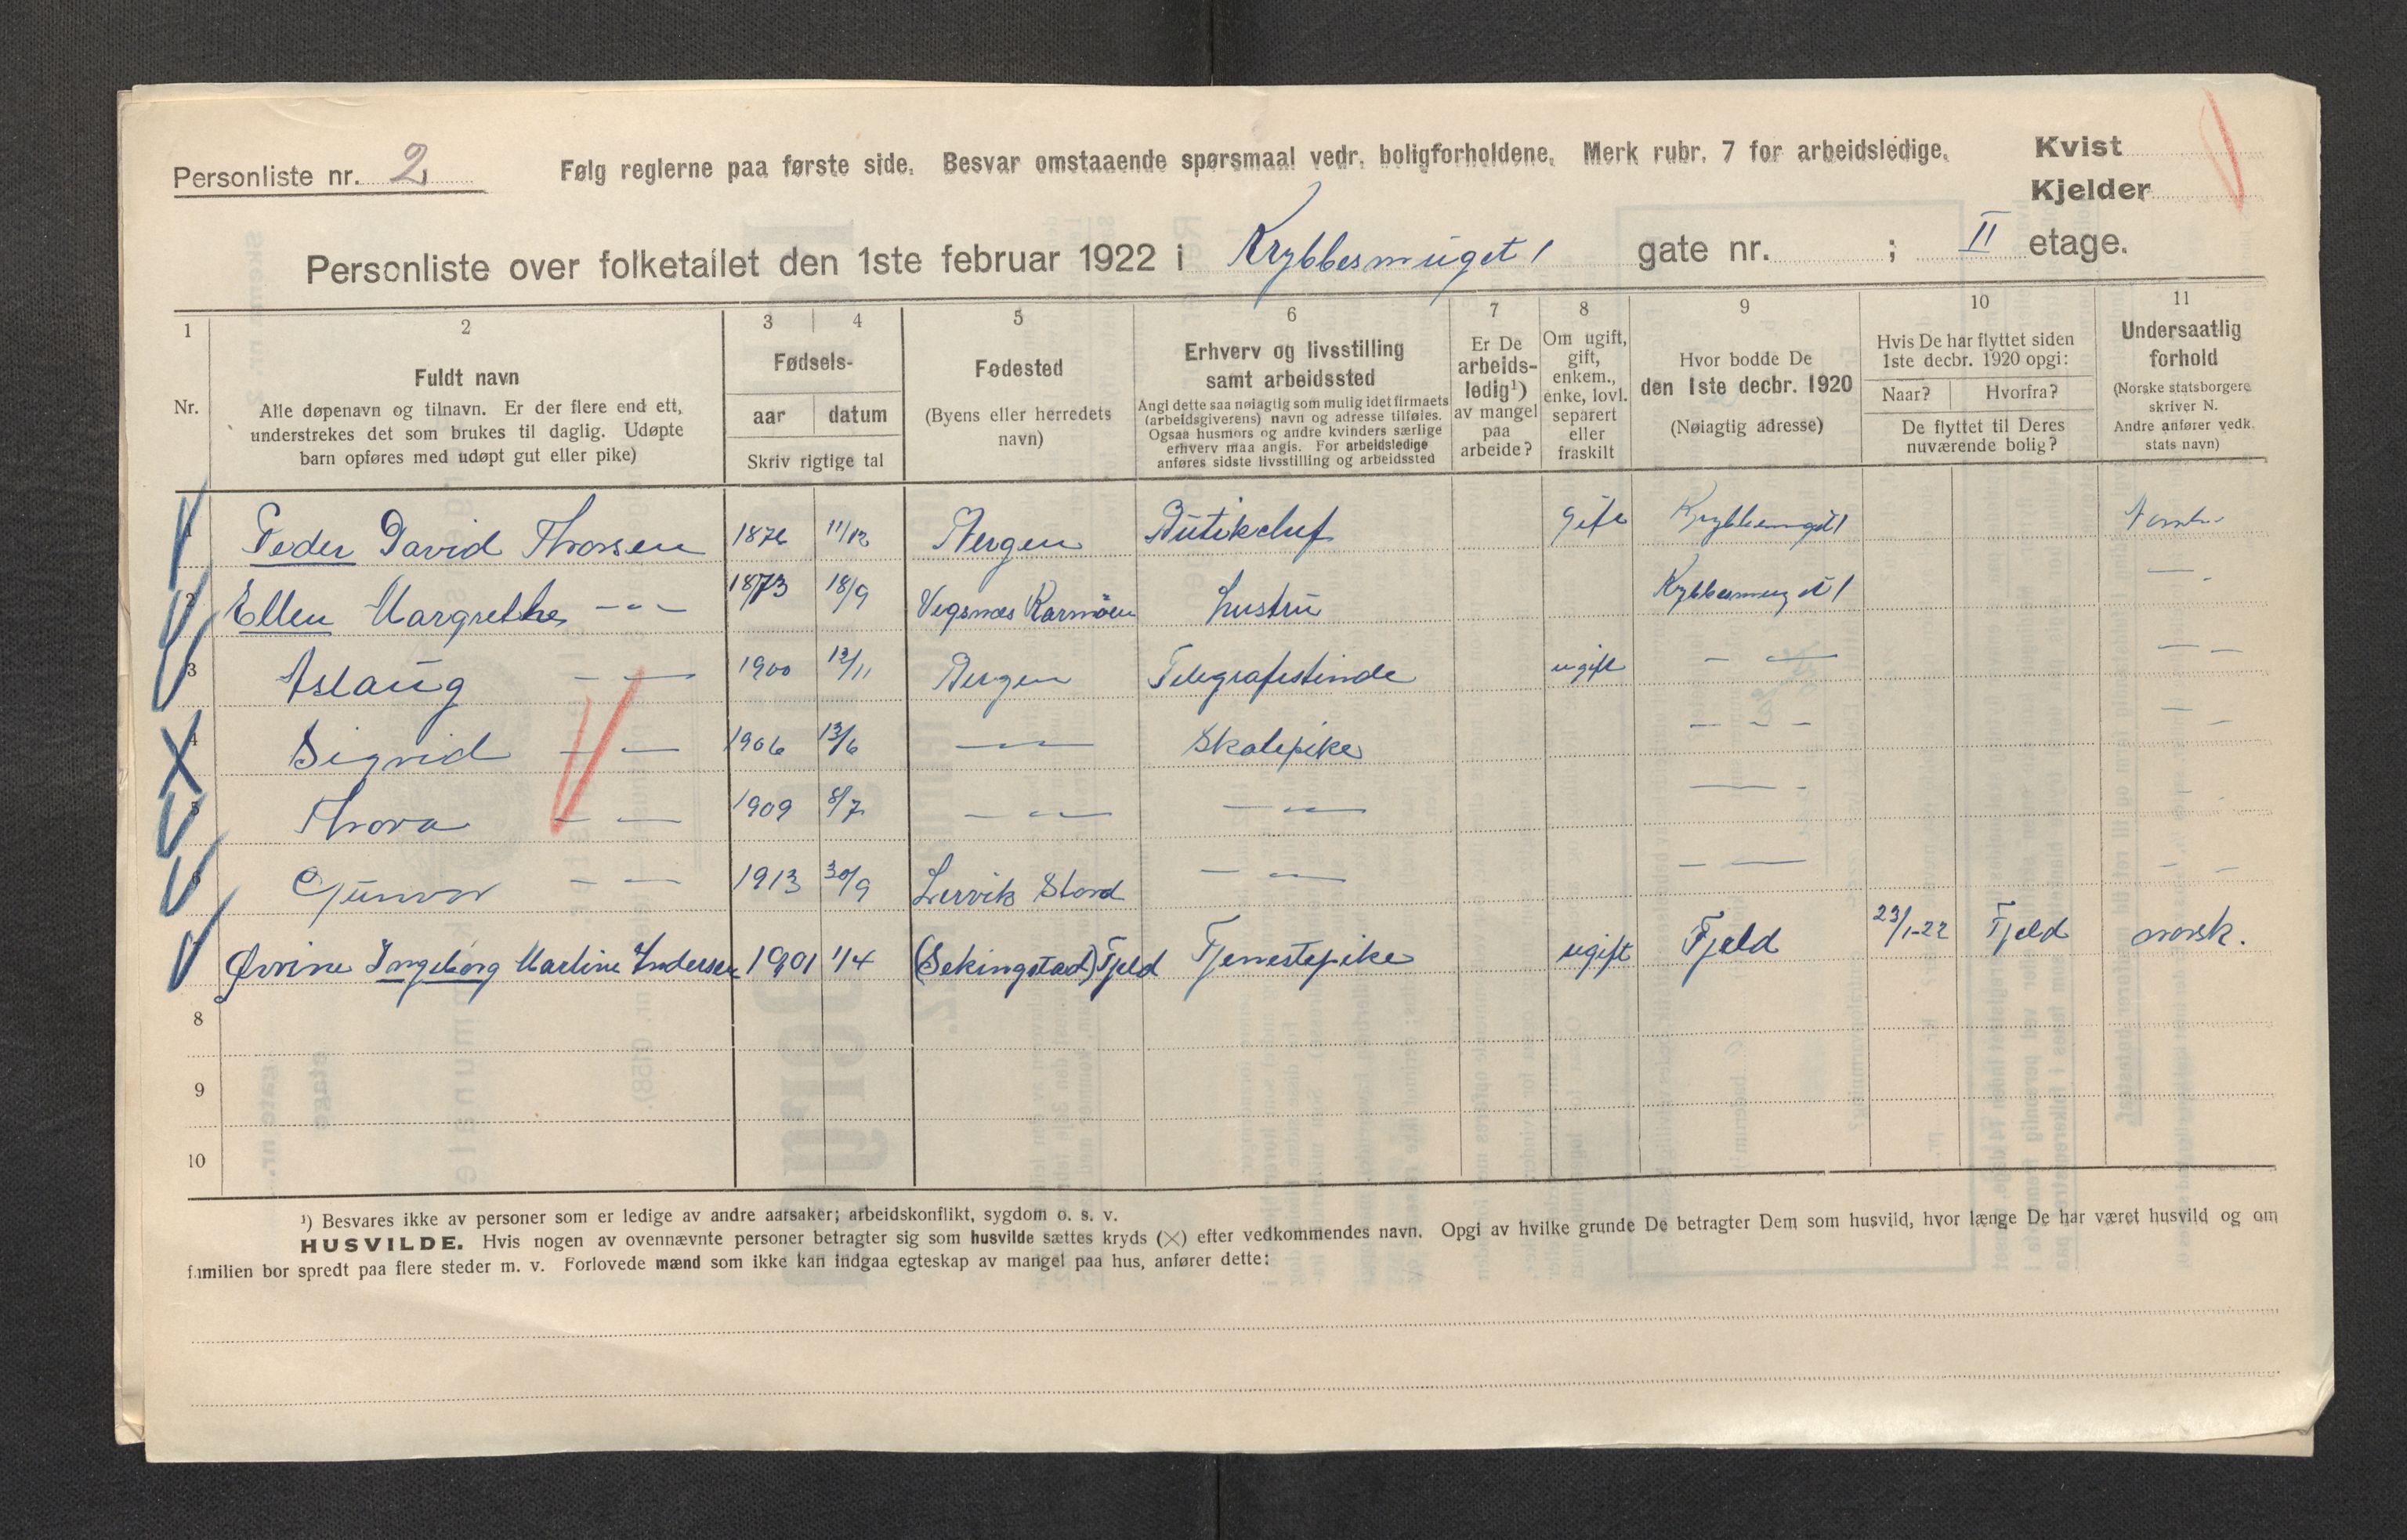 Personliste nr. 2
Følg reglerne paa første side. Besvar omstaaende spørsmaal vedr. boligforholdene. Merk rubr. 7 for arbeidsledige.
Kvist
Kjelder
Personliste over folketallet den 1ste februar 1922 i Krybbesmuget 1 gate nr. ; II etage.
1 2 3 4 5 6 7 8 9 10 11
Nr.
Fuldt navn
Alle døpenavn og tilnavn. Er der flere end ett,
understrekes det som brukes til daglig. Udøpte
barn opføres med udøpt gut eller pike)
Fødsels-
aar datum
Skriv rigtige tal
Fødested
(Byens eller herredets
navn)
Erhverv og livsstilling
samt arbeidssted
Angi dette saa nøiagtig som mulig idet firmaets
(arbeidsgiverens) navn og adresse tilføies.
Ogsaa husmors og andre kvinders særlige
erhverv maa angis. For arbeidsledige
anføres sidste livsstilling og arbeidssted
Er De
arbeids-
ledig¹)
av mangel
paa
arbeide?
Om ugift,
gift,
enkem.,
enke, lovl.
separert
eller
fraskilt
Hvor bodde De
den 1ste decbr. 1920
(Nøiagtig adresse)
Hvis De har flyttet siden
1ste decbr. 1920 opgi:
Naar? Hvorfra?
De flyttet til Deres
nuværende bolig?
Undersaatlig
forhold
(Norske statsborgere
skriver N.
Andre anfører vedk.
stats navn)
1 Peder David Thorsen 1876 11/12 Bergen Butikchef gift Krybbesmuget 1 Norsk
2 Ellen Margrethe - - - 1873 18/9 Vigsnes Karmöen hustru Krybbesmuget 1 —
3 Aslaug - — 1900 12/11 Bergen Telegrafistinde ugift - — — -
4 Sigrid — — 1906 13/6 — — Skolepike - - - — -
5 Thora - — 1909 8/7 - — — - — — — -
6 Gunvor - — 1913 30/9 Lervik Stord - — - — — -
Øvrine Ingeborg Martine Andersen 1901 1/4 (Sekingstad) Fjeld Tjenestepike ugift Fjeld 23/1-22 Fjeld norsk.
8
9
10
¹) Besvares ikke av personer som er ledige av andre aarsaker; arbeidskonflikt, sygdom o. s. v.
HUSVILDE. Hvis nogen av ovennævnte personer betragter sig som husvilde sættes kryds (×) efter vedkommendes navn. Opgi av hvilke grunde De betragter Dem som husvild, hvor længe De har været husvild og om
familien bor spredt paa flere steder m. v. Forlovede mænd som ikke kan indgaa egteskap av mangel paa hus, anfører dette: